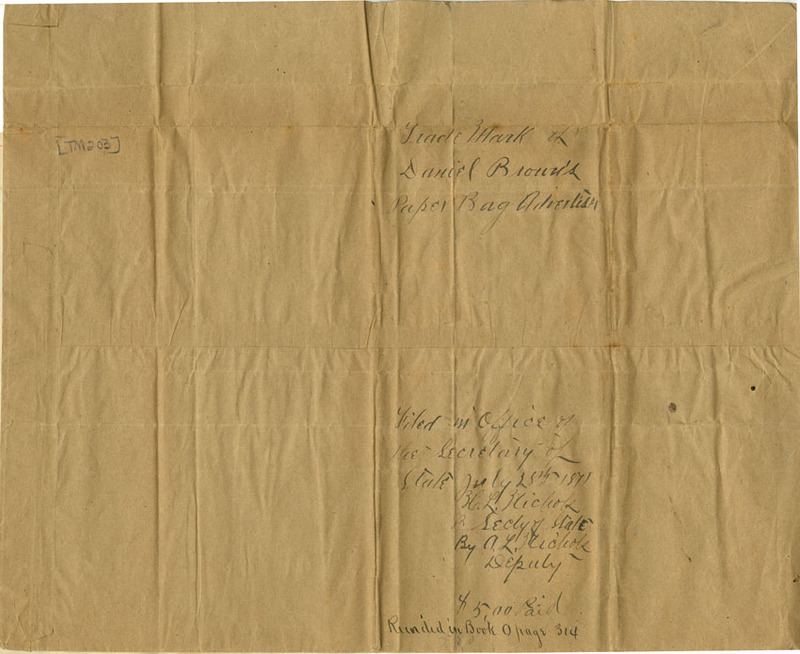 [TM203]
Trade Mark of
Daniel Brown's
Paper Bag Advertis
Filed in Office of
the Secretary of
State July 25th
H. L. Nichols
Secty of State
By A. L. Nichols
Deputy
$5.00 Paid
Recorded in Book O page 314